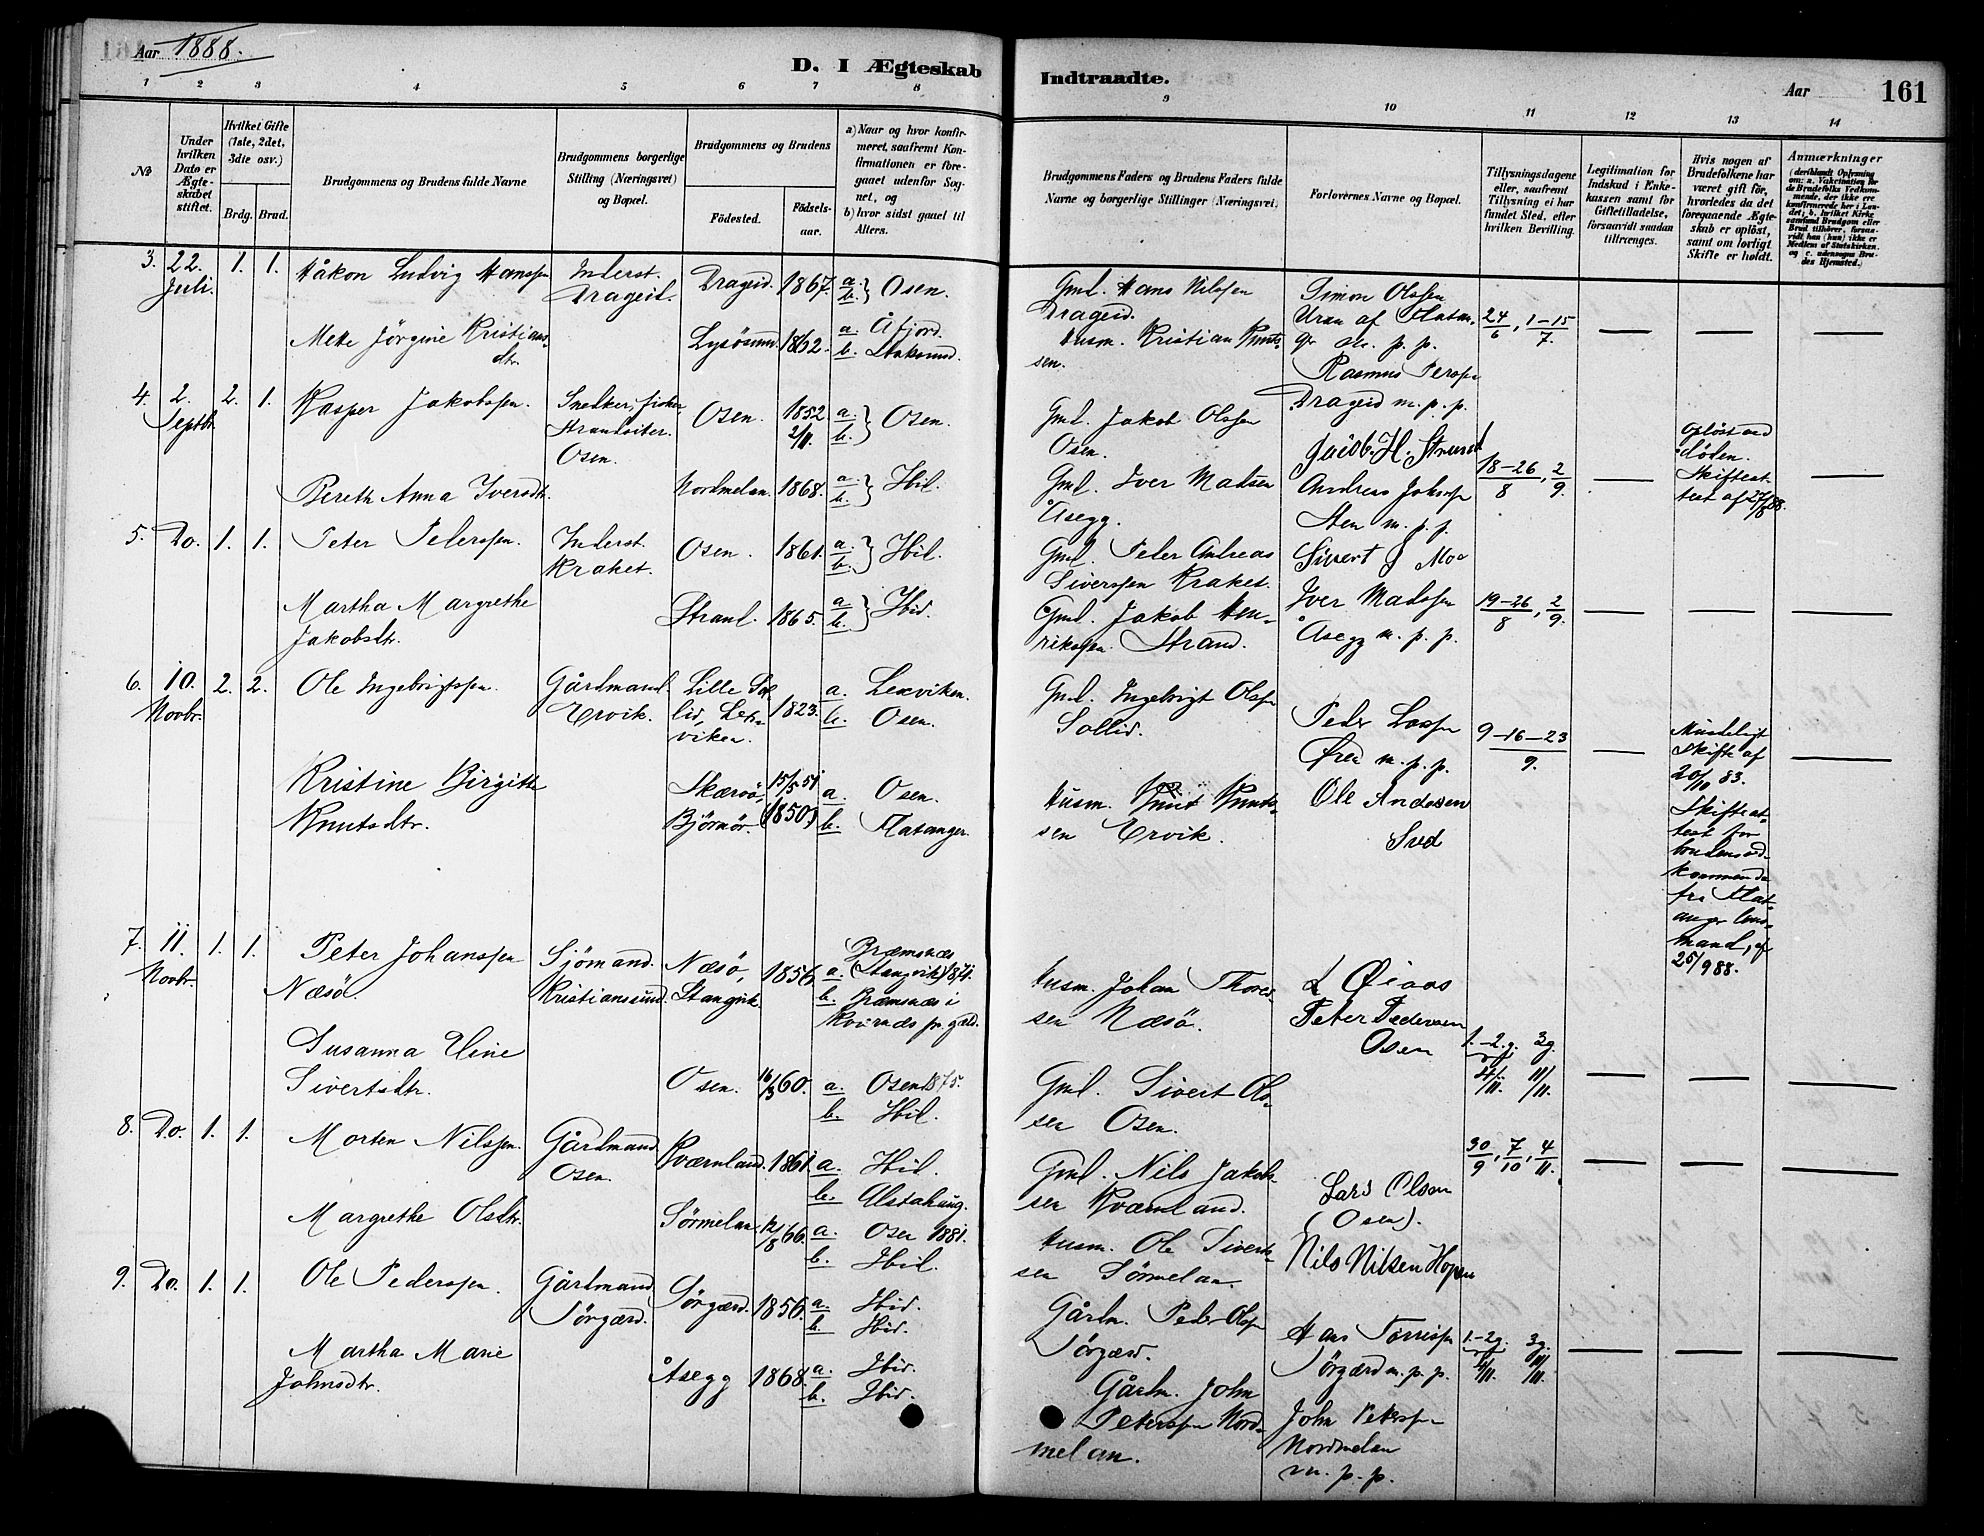 Aar 1888.
D. I Ægteskab Indtraadte.
Aar
161
1 2 3 4 5 6 7 8 9 10 11 12 13 14
No
Under hvilken Dato er Ægteskabet stiftet.
Hvilket Gifte (1ste, 2det, 3die osv.)
Brdg. Brud.
Brudgommens og Brudens fulde Navne
Brudgommens borgerlige Stilling (Næringsvei) og Bopæl.
Brudgommens og Brudens
Födested.
Födselsaar.
a) Naar og hvor konfirmeret, saafremt Konfirmationen er foregaaet udenfor Sognet, og
b) hvor sidst gaaet til Alters.
Brudgommens Faders og Brudens Faders fulde Navne og borgerlige Stillinger (Næringsvei)
Forlovernes Navne og Bopæl.
Tillysningsdagene eller, saafremt Tillysning ei har fundet Sted, efter hvilken Bevilling.
Legitimation for Indskud i Enkekassen samt for Giftetilladelse, forsaavidt saadan tiltrænges.
Hvis nogen af Brudefolkene har været gift för, hvorledes da det foregaaende Ægteskab er oplöst, samt om lovligt Skifte er holdt.
Anmærkninger
3. 22. Juli. 1. 1. Håkon Ludvig Hanssen Inderst. Drageid. Drageid. 1867. a. b. } Osen.
Gml. Hans Nilssen Drageid.
Simon Olssen
24/6, 1-15/7.
Mette Jörgine Kristiansdtr. Lysösund. 1862. a. Åfjord. b. Stoksund.
Husm. Kristian Knutssen.
Rasmus Perssen Drageid m. p. p.
4. 2. Septbr. 2. 1. Kasper Jakobssen. Snedker, fisker Strandsitter. Osen. Osen. 1852 2/11. a. b. } Osen.
Gml. Jakob Olssen Osen.
Jacob. H. Strand
18-26/8, 2/9.
Opløst ved døden. Skifteattest af 27/8 88.
Bereth Anna Iversdtr. Nordmelan. 1868. a. b. } Ibid.
Gml. Iver Madsen Åsegg.
Andreas Johnsen Sten m. p. p.
5. Do. 1. 1. Peter Peterssen. Inderst. Kraket. Osen. 1861. a. b. } Ibid.
Gml. Peter Andreas Siverssen Kraket.
Sivert J Moe
19-26/8, 2/9.
Martha Margrethe Jakobsdtr. Strand. 1865. a. b. } Ibid.
Gml. Jakob Henrikssen Strand.
Iver Madssen Åsegg m. p. p.
6. 10. Novbr. 2. 2. Ole Ingebrigtssen. Gårdmand. Ervik. Lille Sollid, Leksviken. 1823. a. Lexviken. b. Osen.
Gml. Ingebrigt Olssen Sollid.
Peder Lassen Øren m. p. p.
9-16-23/9.
Mindeligt Skifte af 20/10 83.
Kristine Birgitte Knutsdtr. Skærvö, Björnör. 15/5 51 (1850) a. Osen. b. Flatanger.
Husm. Knut Knutssen Ervik.
Ole Andersen Sved
Skifteattest for brudens vedkommende fra Flatanger lensmand, af 25/9 88.
7. 11. Novbr. 1. 1. Peter Johanssen Næsö. Sjömand. Kristianssund. Næsö, Stangvik. 1856. a. Bræmsnæs (Stangvik) 1871. b. Bræmsnæs i Kvernæs pr. gæld.
Husm. Johan Thoressen Næsö.
L Øiaas
Peter Pedersen Osen
1.-2. g. 4/11. 3 g. 11/11.
Susanna Eline Sivertsdtr. Osen. 16/3 60. a. Osen 1875. b. Ibid.
Gml. Sivert Olssen Osen.
8. Do. 1. 1. Morten Nilssen. Gårdmand Osen. Kværnland. 1861. a. Ibid. b. Alstahaug.
Gml. Nils Jakobssen Kværnland.
Lars Olsen (Osen).
30/9, 7/10, 4/11.
Margrethe Olsdtr. Sörmelan. 12/8 66. a. Osen 1881. b. Ibid.
Husm. Ole Sivertssen Sörmelan.
Nils Nilsen Hopen
9. Do. 1. 1. Ole Pederssen. Gårdmand Sörgærd. Sörgærd. 1856. a. Ibid. b. Ibid.
Gårdm. Peder Olssen Sörgærd.
Hans Torrissen Sörgærd m. p. p.
1.-2 g. 4/11. 3 g. 11/11.
Martha Marie Johnsdtr. Åsegg 1868. a. Ibid. b. Ibid.
Gårdm. John Peterssen Nordmelan.
John Peterssen Nordmelan m. p. p.